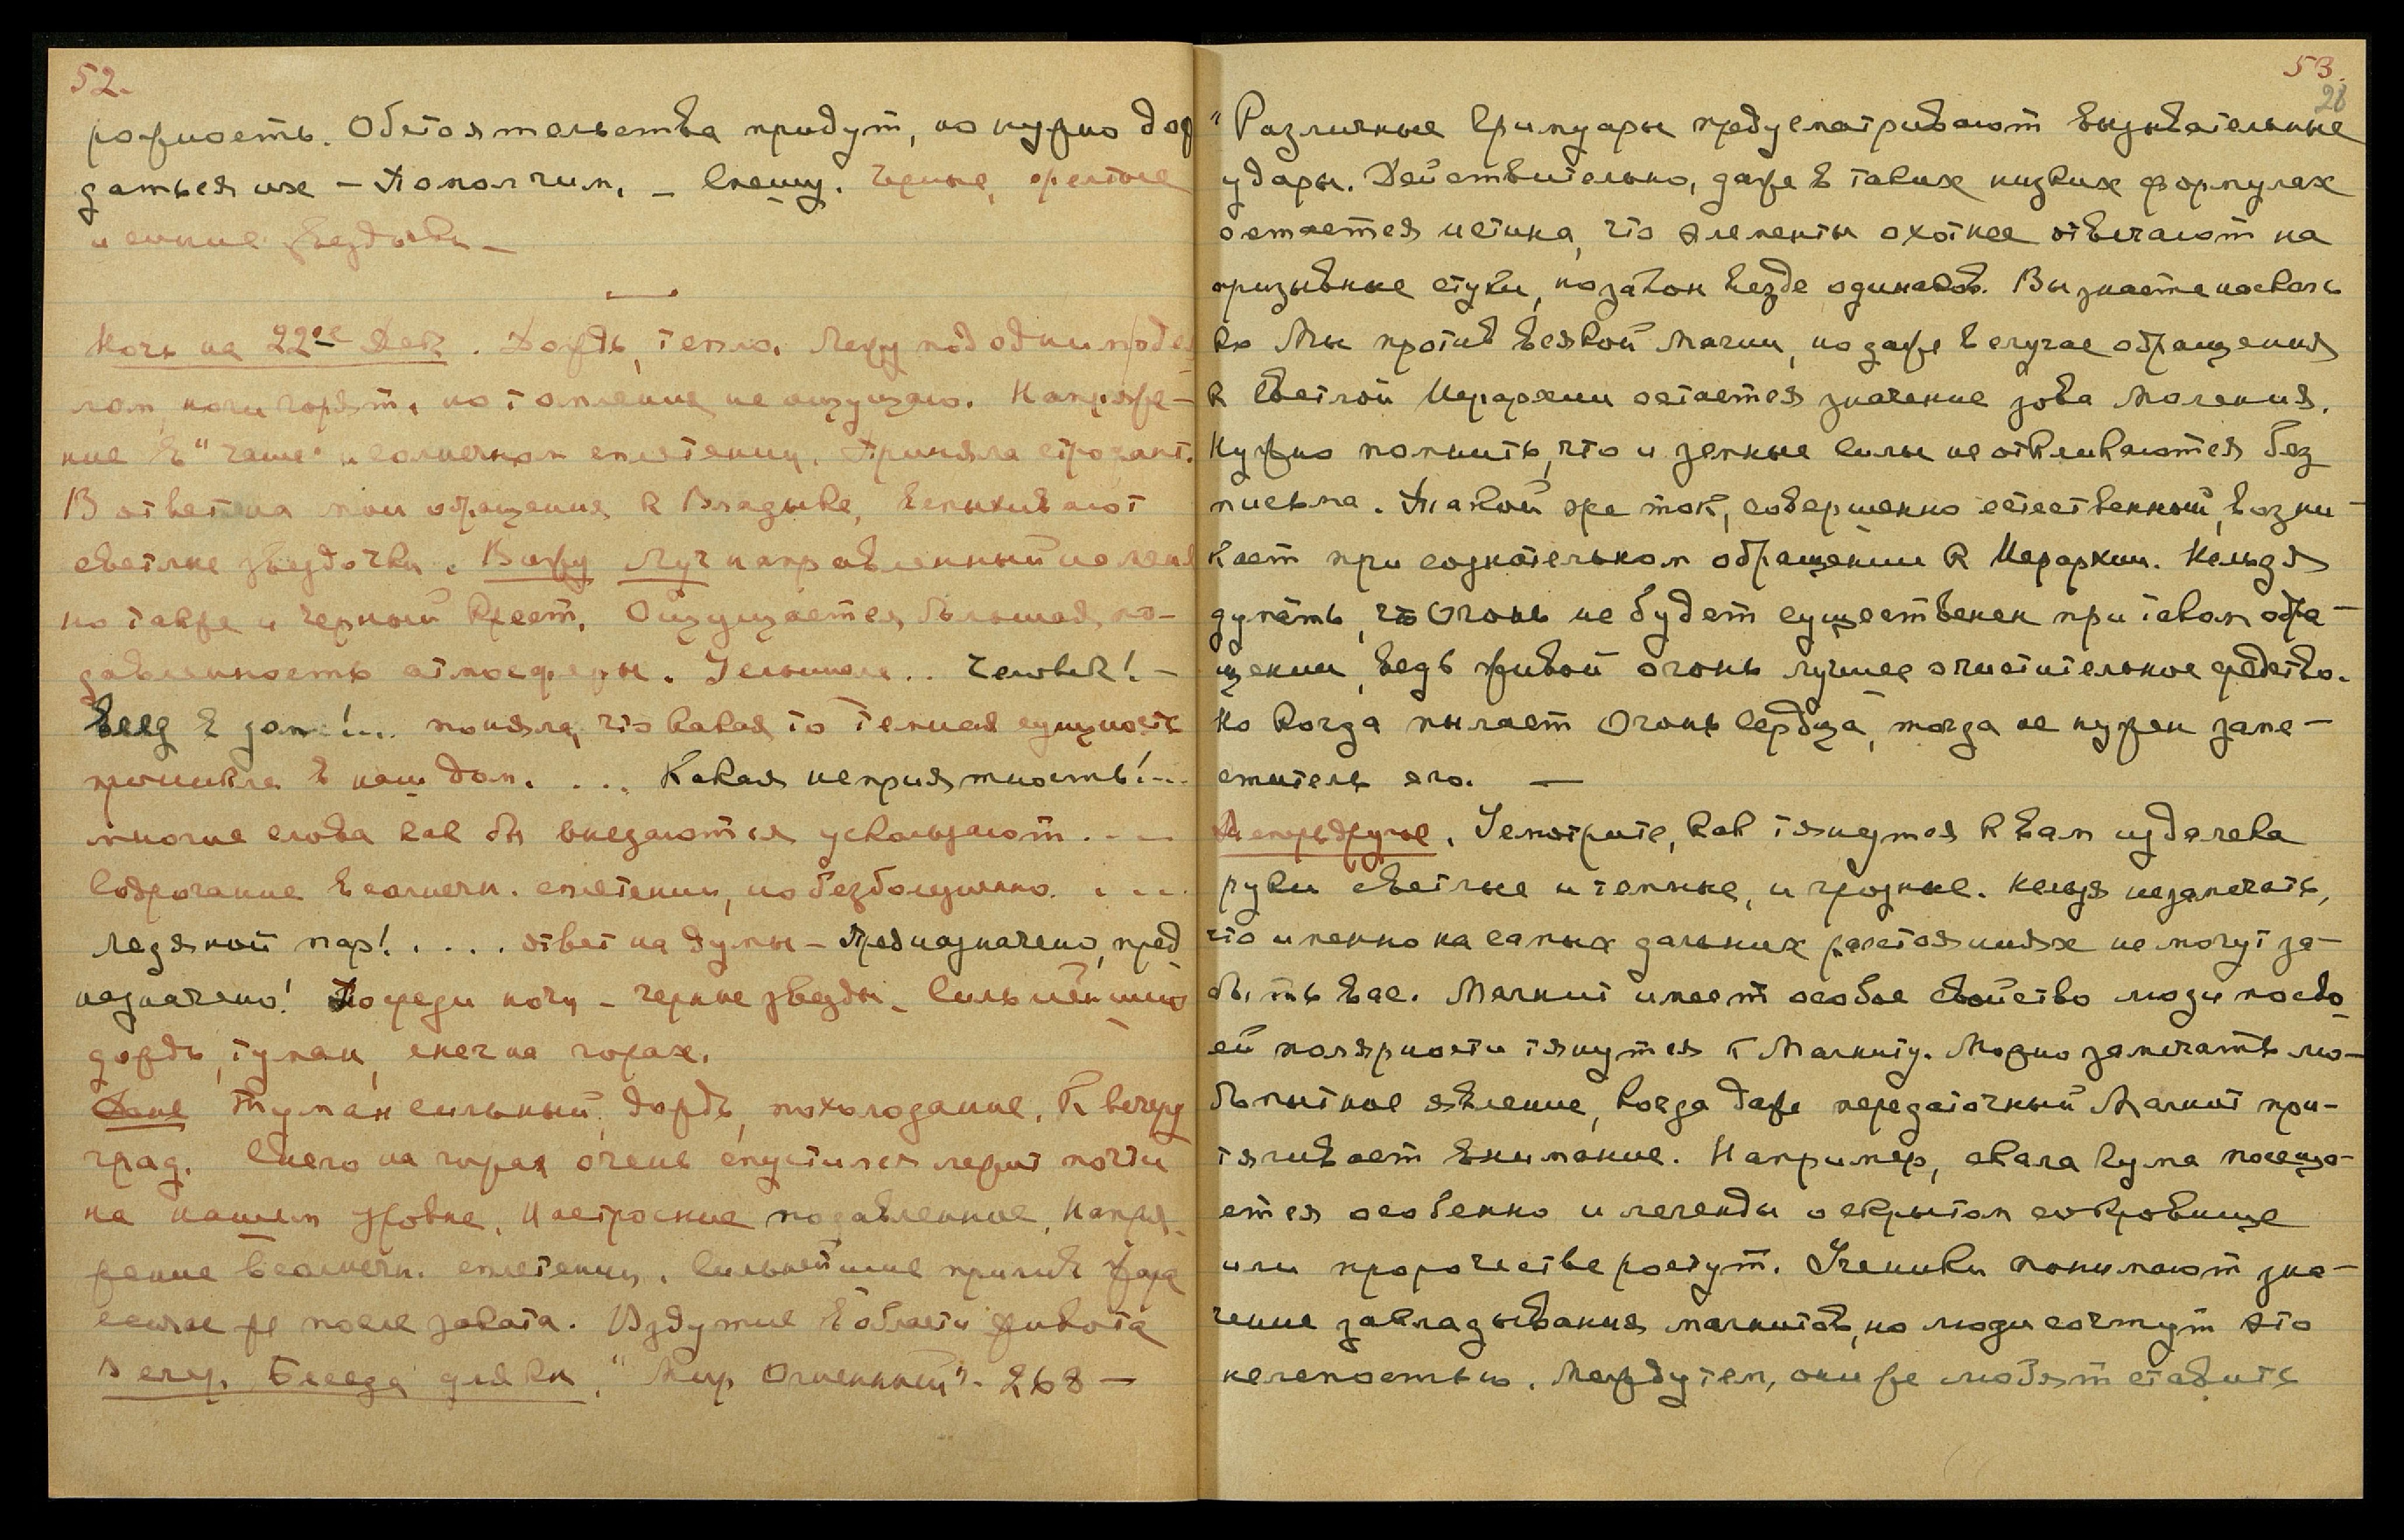 52.
рожность. Обстоятельства придут, но нужно дож
даться их – Помолчим. – Спешу. Черные, желтые
и синие звездочки –
Ночь на 22ое Дек. Дождь, тепло. Лежу под одним одея
лом, ноги горят, но томление не ощущаю. Напряже-
ние в "чаше" и солнечном сплетении. Приняла строфант.
В ответ на мои обращения к Владыке, вспыхивают
светлые звездочки. Вижу Луч направленный на меня
но также и черный крест. Ощущается большая по-
давленность атмосферы. Услышала.. Человек! –
влез в дом!... поняла, что какая то темная сущность
проникла в наш дом. ... Какая неприятность!...
многие слова как бы внедаются ускользают. ...
Содрогание в солнечн. сплетении, но безболезненно. ...
Ледяной пар!.... ответ на думы – Предназначено, пред
назначено! Посреди ночи – черные звезды. Сильнейший
дождь, туман, снег на горах.
Днем Туман сильный, дождь, похолодание. К вечеру
град. Снег на горах очень спустился лежит почти
на нашем уровне. Настроение подавленное. Напря-
жение в солнечн. сплетении. Сильнейший прилив жара
после заката. Вздутие в области живота
Вечер. Беседа для кн. "Мир Огненный". 268 –
53.
28
"Различные Гримуары предусматривают вызывательные
удары. Действительно, даже в таких низких формулах
остается истина, что элементы охотнее отвечают на
призывные стуки, но закон везде одинаков. Вы знаете насколь
ко Мы против всякой магии, но даже в случае обращения
к Светлой Иерархии остается значение зова моления.
Нужно помнить, что и земные силы не откликаются без
письма. Такой же ток, совершенно естественный, возни-
кает при сознательном обращении к Иерархии. Нельзя
думать, что Огонь не будет существенен при таком обра-
щении, ведь живой огонь лучшее очистительное средство.
Но когда пылает Огонь Сердца, тогда не нужен заме-
ститель его. –
Теперь другое. Усмотрите, как тянутся к вам издалека
руки светлые и темные, и грозные. Нельзя не замечать,
что именно на самых дальних расстояниях не могут за-
быть вас. Магнит имеет особое свойство люди по сво-
ей полярности тянутся к Магниту. Можно замечать лю-
бопытное явление, когда даже передаточный Магнит при-
тягивает внимание. Например, скала Кума посеща-
ется особенно и легенды о скрытом сокровище
или пророчестве растут. Ученики понимают зна-
чение закладывания магнитов, но люди сочтут это
нелепостью. Между тем, они же любят ставить